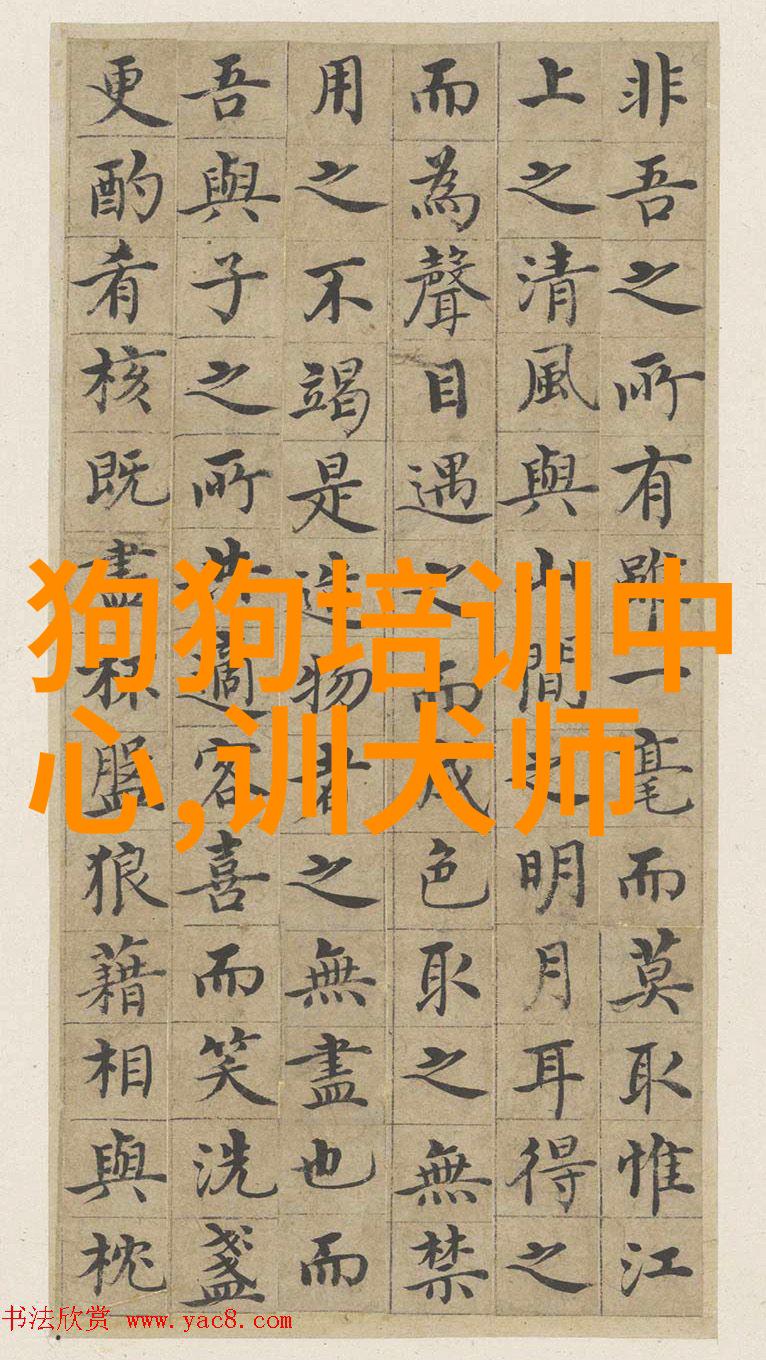 非吾之所有雖一毫而莫取惟江
上之清風與山間之明月耳得之
而為聲目遇之而成色取之無禁
用之不竭是造物者之無盡也而
吾與子之所共適客喜而笑洗盞
更酌肴核既盡杯盤狼藉相與枕
狗狗培训中
心,训犬师
书法欣赏 www.yac8.com